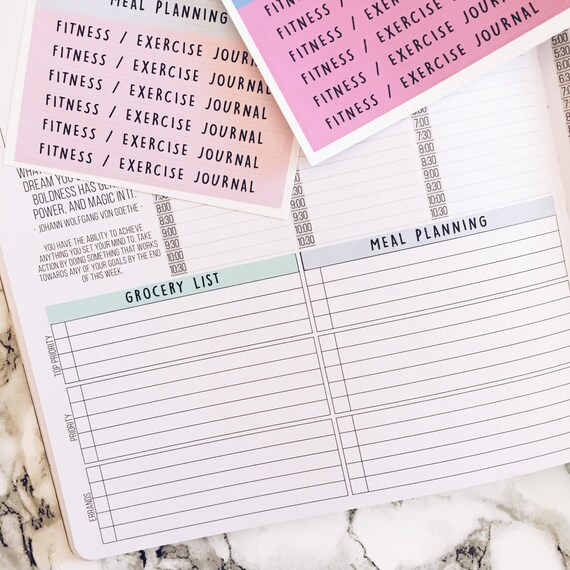 MEAL PLANNING
FITNESS / EXERCISE JOURNAL
FITNESS / EXERCISE JOURNAL
FITNESS / EXERCISE JOURNAL
FITNESS / EXERCISE JOURNAL
FITNESS / EXERCISE JOURNAL
FITNESS / EXERCISE JOURNAL
FITNESS / EXERCISE JOURNAL
FITNESS / EXERCISE JOURNAL
FITNESS / EXERCISE JOURNAL
FITNESS / EXERCISE JOURNAL
FITNESS / EXERCISE JOURNAL
DREAM YOU
BOLDNESS HAS
POWER, AND MAGIC IN IT.
- JOHANN WOLFGANG VON GOETHE -
YOU HAVE THE ABILITY TO ACHIEVE
ANYTHING YOU SET YOUR MIND TO. TAKE
ACTION BY DOING SOMETHING THAT WORKS
TOWARDS ANY OF YOUR GOALS BY THE END
OF THIS WEEK.
8:30
9:00
9:30
10:00
10:30
9:00
9:30
10:00
10:30
7:00
7:30
8:00
8:30
9:00
9:30
10:00
10:30
5:00
5:30
6:00
6:30
7:00
GROCERY LIST
MEAL PLANNING
TOP PRIORITY
PRIORITY
ERRANDS